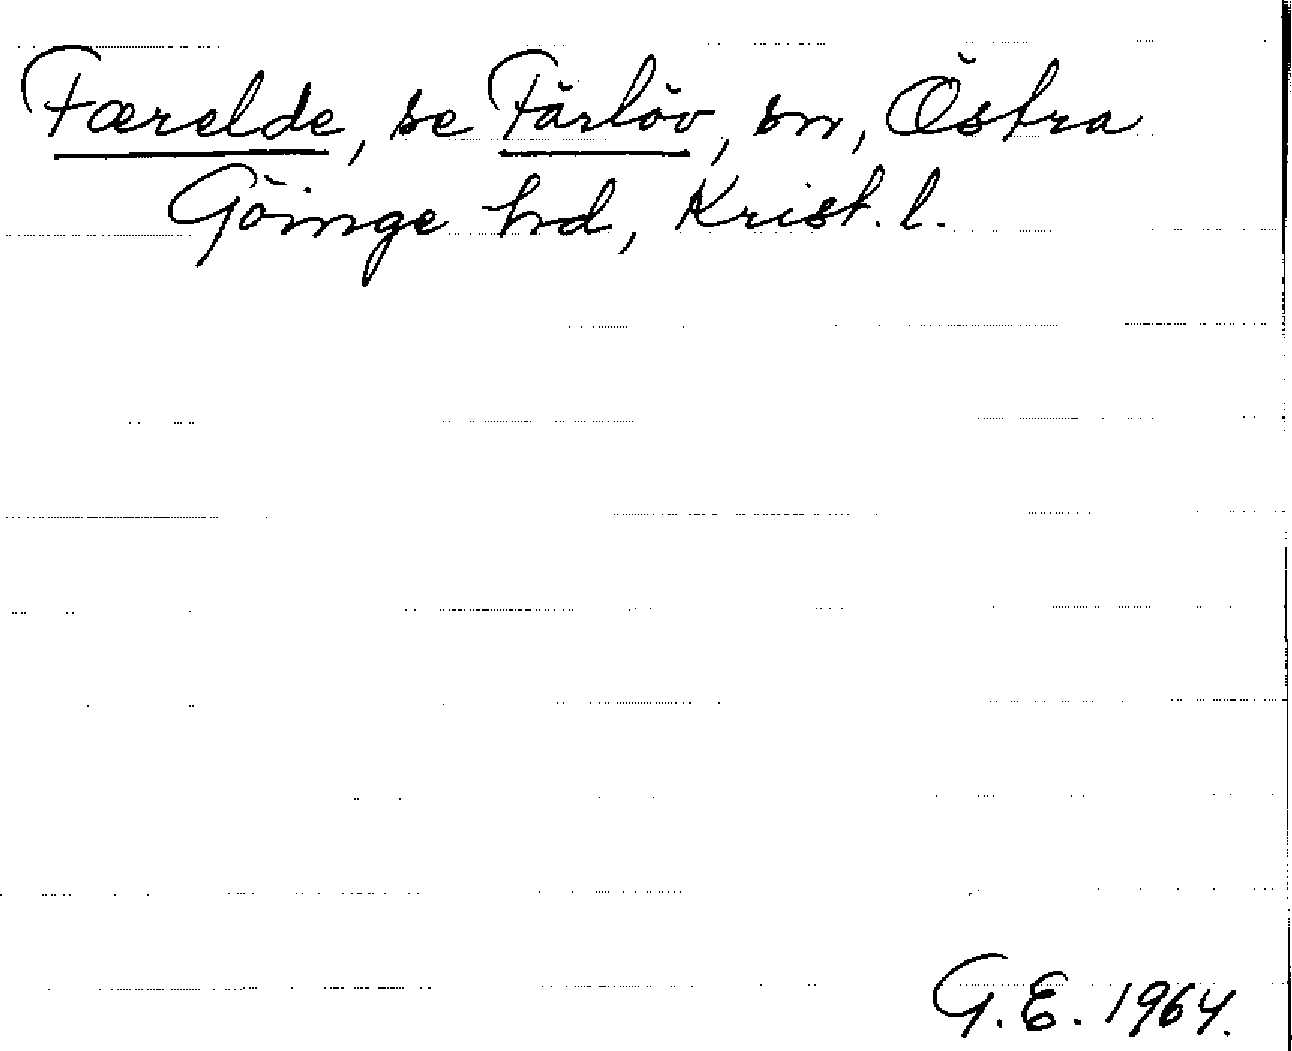 Færelde, se Färlöv, sn, Östra
Göinge hd, Krist. l.
G.E. 1964.